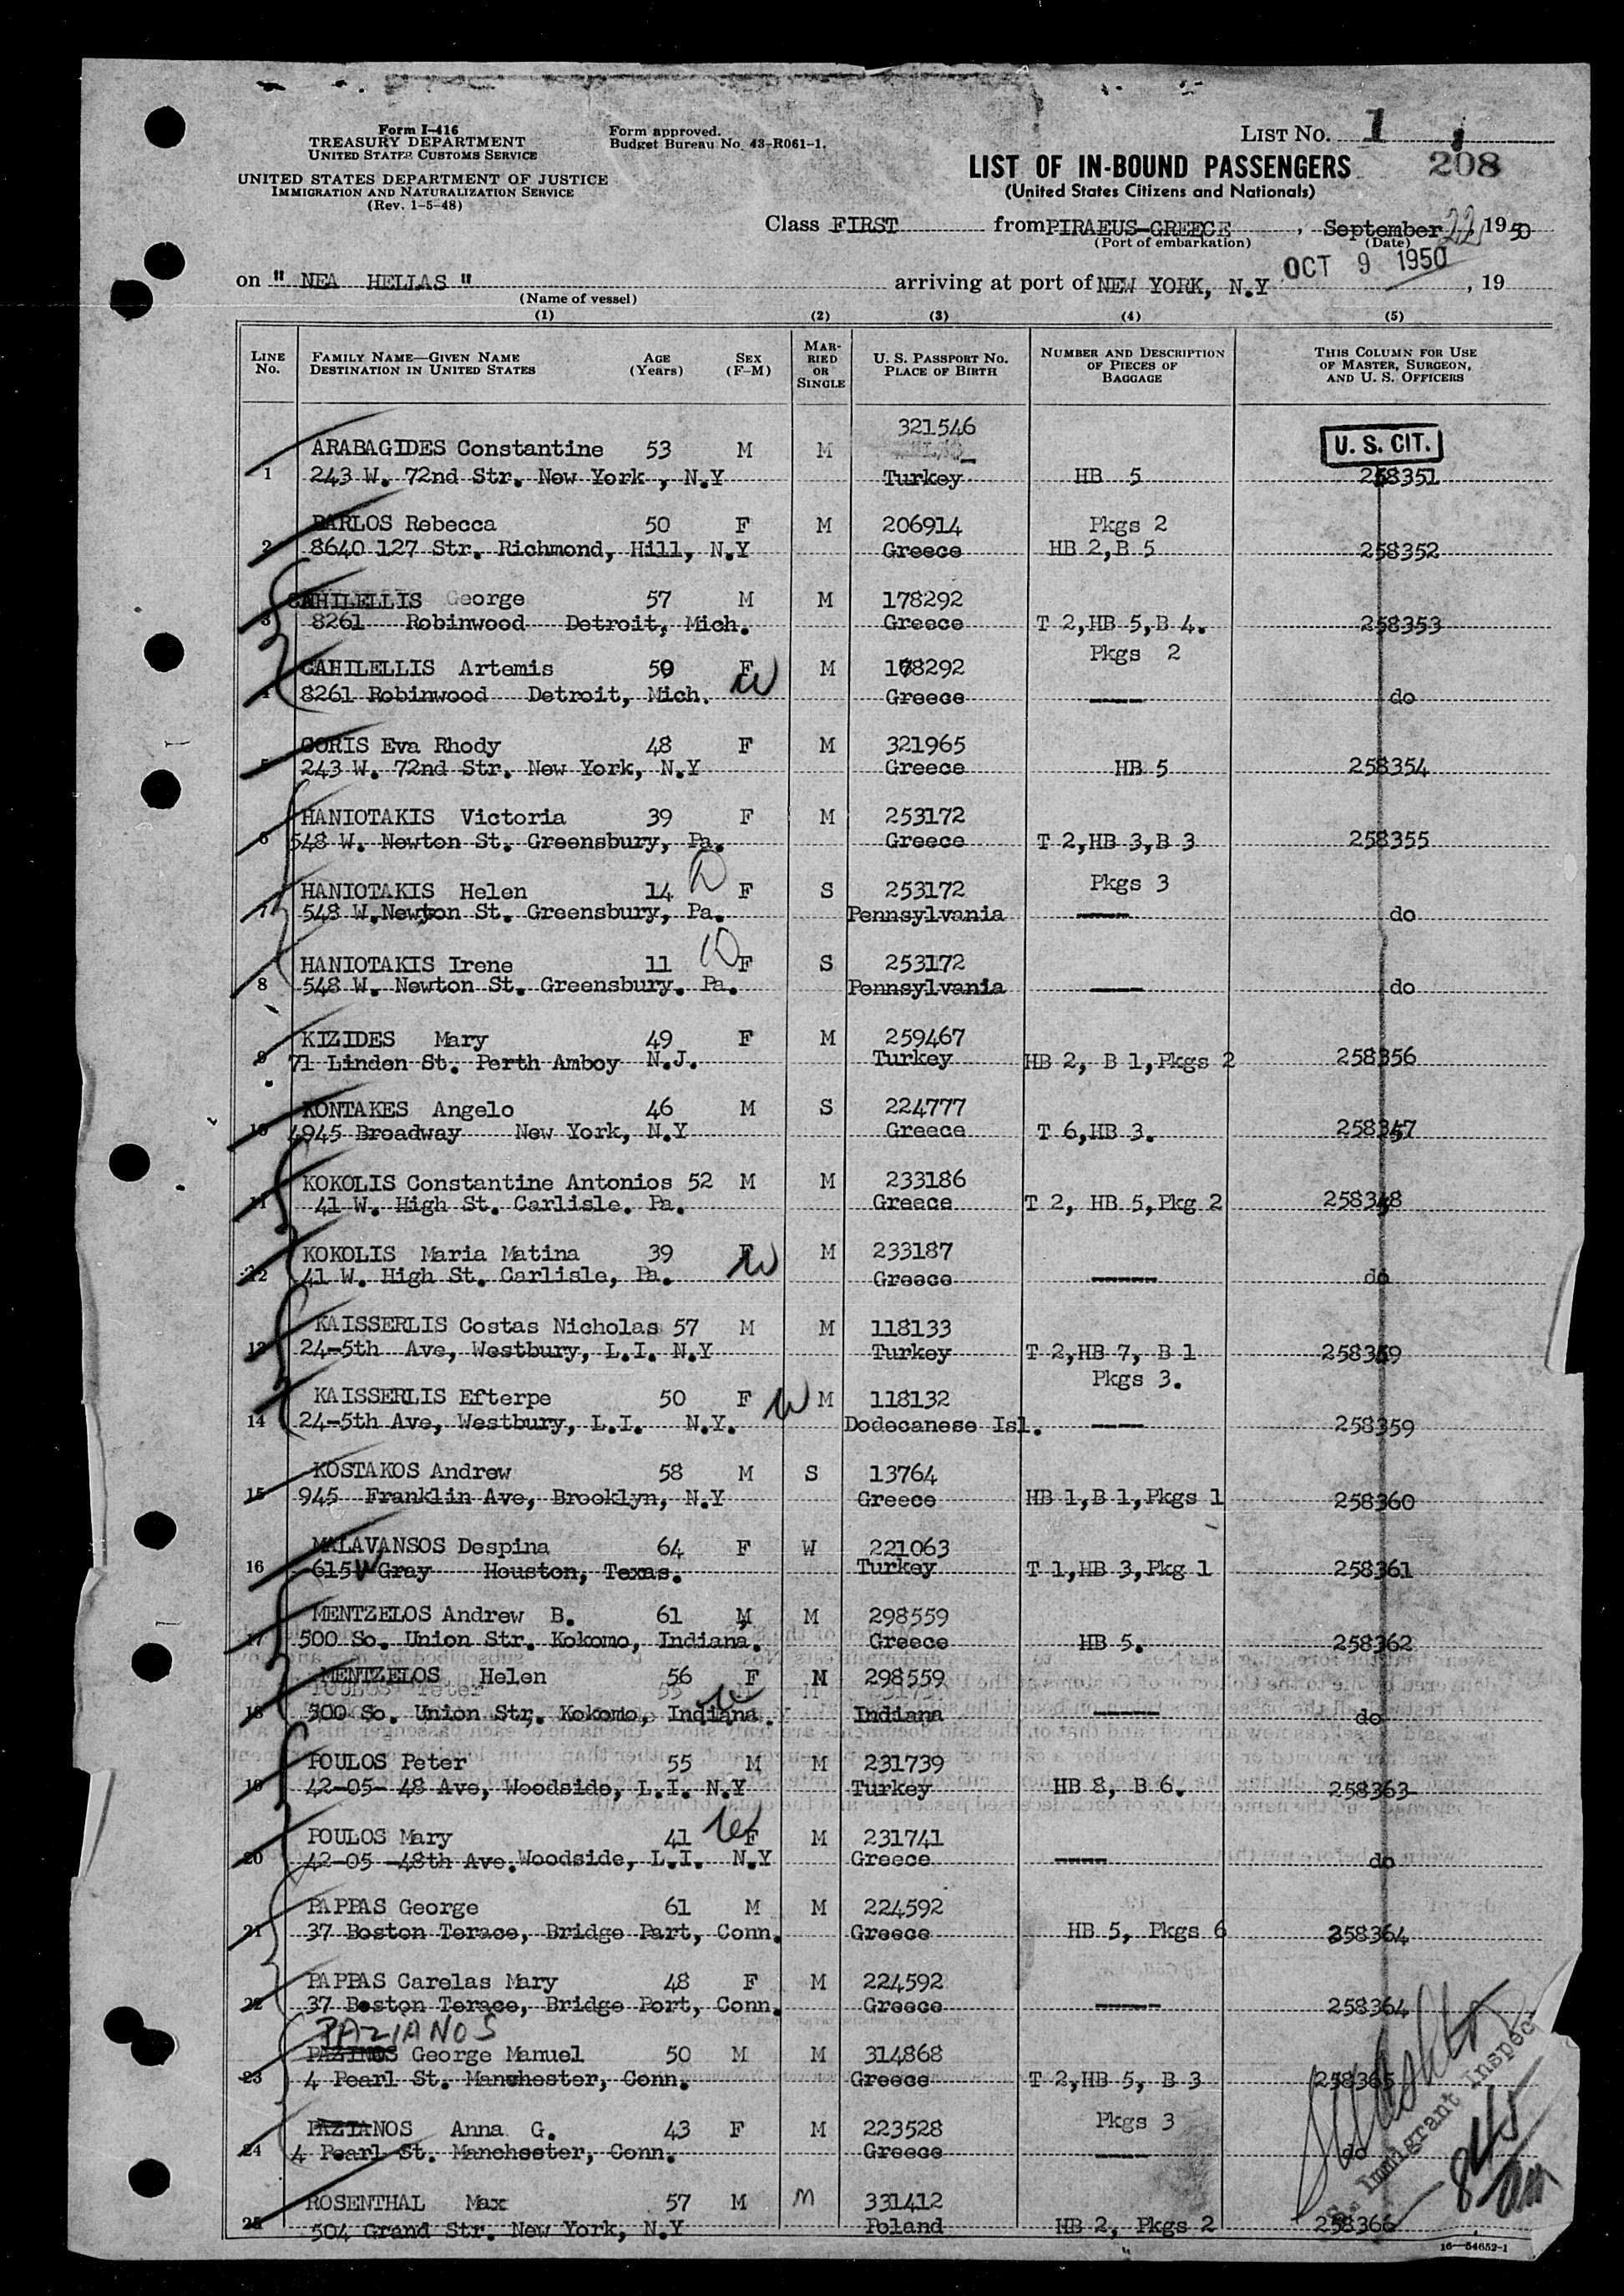 Form I-416
TREASURY DEPARTMENT
UNITED STATES CUSTOMS SERVICE
UNITED STATES DEPARTMENT OF JUSTICE
IMMIGRATION AND NATURALIZATION SERVICE
(Rev. 1-5-48)
Form approved.
Budget Bureau No. 43-R061-1.
LIST NO. 1
208
LIST OF IN-BOUND PASSENGERS
(United States Citizens and Nationals)
Class FIRST from PIRAEUS-GREECE, September 22, 1950
(Port of embarkation) (Date)
on " NEA HELLAS " arriving at port of NEW YORK, N.Y OCT 9 1950, 19
(Name of vessel)
(1) (2) (3) (4) (5)
LINE NO. FAMILY NAME—GIVEN NAME DESTINATION IN UNITED STATES AGE (Years) SEX (F-M) MARRIED OR SINGLE U. S. PASSPORT NO. PLACE OF BIRTH NUMBER AND DESCRIPTION OF PIECES OF BAGGAGE THIS COLUMN FOR USE OF MASTER, SURGEON, AND U. S. OFFICERS
321546
ARABAGIDES Constantine 53 M M U. S. CIT.
1 243 W. 72nd Str. New York , N.Y Turkey HB 5 258351
BARLOS Rebecca 50 F M 206914 Pkgs 2
2 8640 127 Str. Richmond, Hill, N.Y Greece HB 2,B 5 258352
CAHILELLIS George 57 M M 178292
3 8261 Robinwood Detroit, Mich. Greece T 2,HB 5,B 4. 258353
Pkgs 2
CAHILELLIS Artemis 50 F W M 178292
4 8261 Robinwood Detroit, Mich. Greece ---- do
GORIS Eva Rhody 48 F M 321965
5 243 W. 72nd Str. New York, N.Y Greece HB 5 258354
HANIOTAKIS Victoria 39 F M 253172
6 548 W. Newton St. Greensbury, Pa. Greece T 2,HB 3,B 3 258355
HANIOTAKIS Helen 14 D F S 253172 Pkgs 3
7 548 W.Newton St. Greensbury, Pa. Pennsylvania ---- do
HANIOTAKIS Irene 11 D F S 253172
8 548 W. Newton St. Greensbury. Pa. Pennsylvania ---- do
KIZIDES Mary 49 F M 259467
9 71 Linden St. Perth Amboy N.J. Turkey HB 2, B 1,Pkgs 2 258356
KONTAKES Angelo 46 M S 224777
10 4945 Broadway New York, N.Y Greece T 6,HB 3. 258357
KOKOLIS Constantine Antonios 52 M M 233186
11 41 W. High St. Carlisle. Pa. Greece T 2, HB 5,Pkg 2 258358
KOKOLIS Maria Matina 39 F W M 233187
12 41 W. High St. Carlisle, Pa. Greece ---- do
KAISSERLIS Costas Nicholas 57 M M 118133
13 24-5th Ave, Westbury, L.I. N.Y Turkey T 2,HB 7, B 1 258359
Pkgs 3.
KAISSERLIS Efterpe 50 F W M 118132
14 24-5th Ave, Westbury, L.I. N.Y. Dodecanese Isl. ---- 258359
KOSTAKOS Andrew 58 M S 13764
15 945 Franklin Ave, Brooklyn, N.Y Greece HB 1,B 1,Pkgs 1 258360
MALAVANSOS Despina 64 F W 221063
16 615 W Gray Houston, Texas. Turkey T 1,HB 3,Pkg 1 258361
MENTZELOS Andrew B. 61 M M 298559
17 500 So. Union Str. Kokomo, Indiana. Greece HB 5. 258362
MENTZELOS Helen 56 F W M 298559
18 500 So. Union Str. Kokomo, Indiana. Indiana ---- do
POULOS Peter 55 M M 231739
19 42-05- 48 Ave, Woodside, L.I. N.Y Turkey HB 8, B 6. 258363
POULOS Mary 41 W F M 231741
20 42-05 -48th Ave.Woodside, L.I. N.Y Greece ---- do
PAPPAS George 61 M M 224592
21 37 Boston Terace, Bridge Part, Conn. Greece HB 5, Pkgs 6 258364
PAPPAS Carelas Mary 48 F M 224592
22 37 Boston Terace, Bridge Port, Conn. Greece ---- 258364
PAZIANOS
PAZINOS George Manuel 50 M M 314868
23 4 Pearl St. Manchester, Conn. Greece T 2,HB 5, B 3 258365
PAZIANOS Anna G. 43 F M 223528 Pkgs 3
24 4 Pearl St. Manchester, Conn. Greece ---- do
ROSENTHAL Max 57 M M 331412
25 504 Grand Str. New York, N.Y Poland HB 2, Pkgs 2 258366
Immigrant Inspec
845 am
16—54652-1